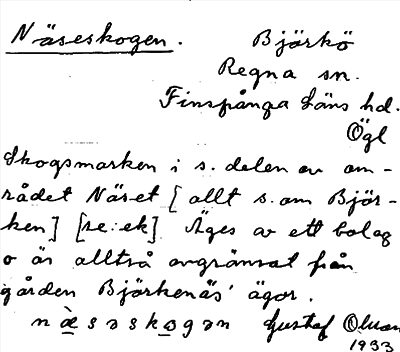 Näseskogen. Björkö
Regna sn.
Finspånga läns hd.
Ögl
Skogsmarken i s. delen av om-
rådet Näset [allt s. om Björ-
ken] [se: ek]. Äges av ett bolag
o är alltså avgränsat från
gården Björkenäs' ägor.
næ̀səskogən Gustaf Olsson
1933